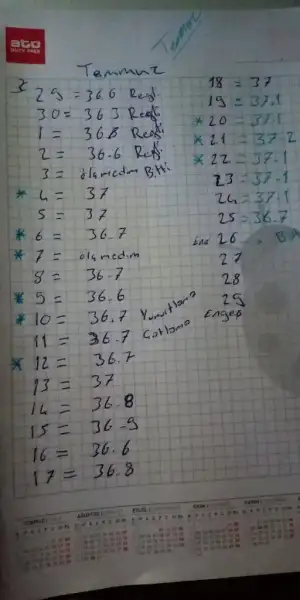 ato
DUTY FREE
Temmuz
Temmuz
29 = 36.6 Regl.
30 = 36 3 Regl.
1 = 36.8 Regl.
2 = 36.6 Regl.
3 = ölçmedim Bitti
* 4 = 37
5 = 37
* 6 = 36.7
* 7 = ölçmedim
8 = 36.7
* 9 = 36.6
* 10 = 36.7 Yumurtlama
11 = 36.7 Çatlama
* 12 = 36.7
13 = 37
14 = 36.8
15 = 36.9
16 = 36.6
17 = 36.8
18 = 37
19 = 37.1
* 20 = 37.1
* 21 = 37.2
* 22 = 37.1
23 = 37.1
24 = 37.1
25 = 36.7
26
27
28
29